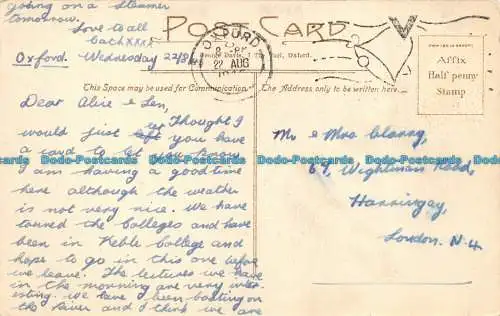 going on a steamer
tomorrow.
Love to all
Cath xxxx
POST CARD
OXFORD
22 AUG
Oxford. Wednesday 22/8
AFFIX
Half penny
Stamp
This Space may be used for Communication.
The Address only to be written here.
Dear Alice & Len,
Thought I
would just left you have
a card to let you know
I am having a good time
here although the weather
is not very nice. We have
toured the Colleges and have
been in Keble College and
hope to go in this one before
we leave. The lectures we have
in the morning are very inter-
esting. We have been boating on
the River and I think we are
Mr & Mrs
67, Wightman Road,
Harringay,
London. N.4.
Dodo-Postcards Dodo-Postcards Dodo-Postcards Dodo-Postcards Dodo-Postcards